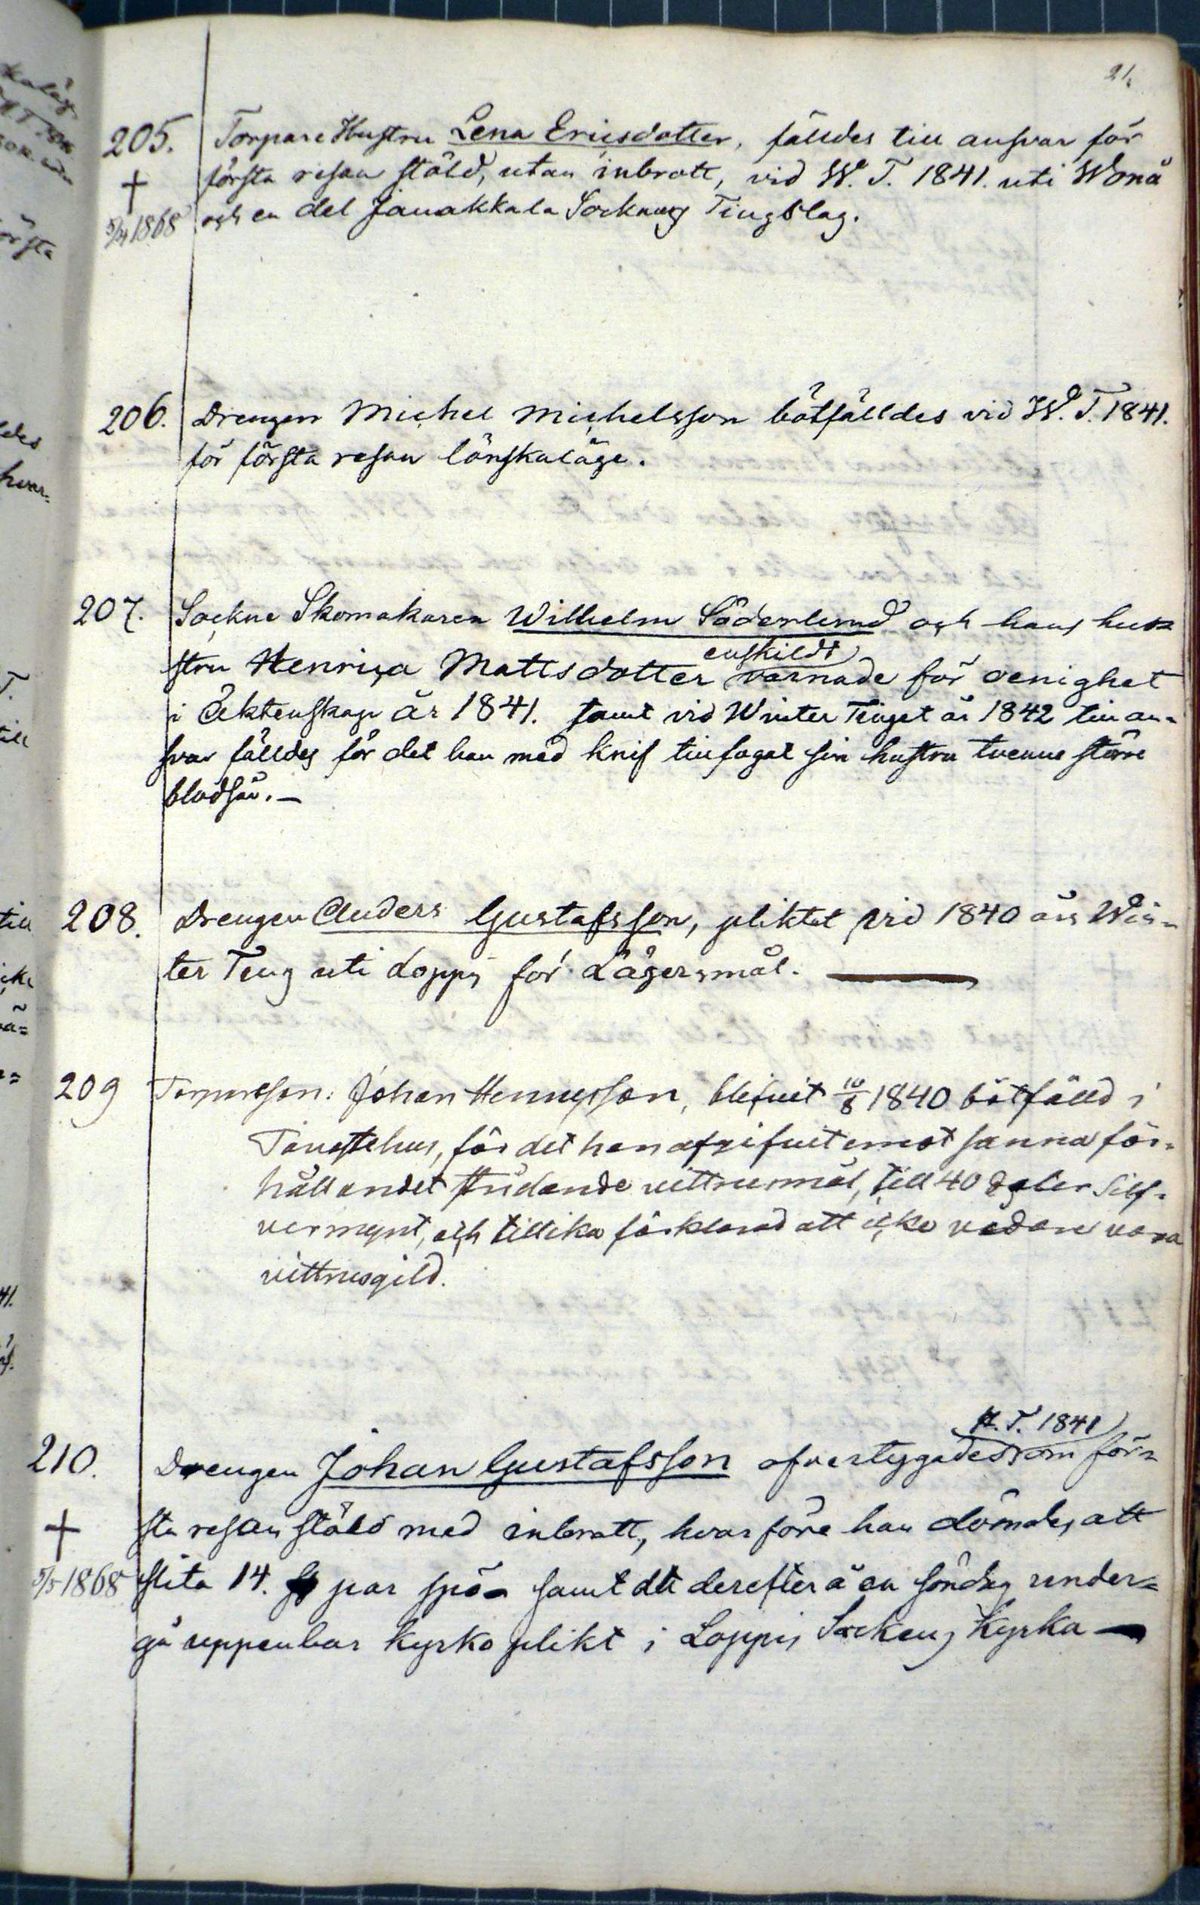 21.
205. Torpare Hustru Lena Ericsdotter, fälldes till ansvar för
† första resan stöld, utan inbrott, vid W. T. 1841. uti Wonå
5/4 1868 och en del Janakkala Socknars Tingslag.
206. Drengen Michel Michelsson bötfälldes vid W. T. 1841.
för första resan lönskaläge.
207. Sockne Skomakaren Wilhelm Söderlund och hans hu-
enskildt
stru Henrica Mattsdotter varnade för oenighet
i Äktenskap år 1841. samt vid Winter Tinget år 1842 till an-
svar fälldes för det han med knif tillfogat sin hustru tvenne större
blodsår. —
208. Drengen Anders Gustafsson, pliktet vid 1840 års Win-
ter Ting uti Loppis för Lägersmål. —
209 Torpareson: Johan Hennesson, blifvit 10/8 1840 bötfälld i
Tavastehus, för det han afgifvit emot sanna för-
hållandet stridande vittnesmål, till 40 daler Silf-
vermynt, och tillika förklarad att icke vidare vara
vittnesgild.
H. T. 1841
210. Drengen Johan Gustafsson öfvertygades om för-
† sta resan stöld med inbrott, hvarföre han dömdes att
5/5 1868 slita 14. par spö samt att derefter å en söndag under-
gå uppenbar Kyrkoplikt i Loppis Sockens Kyrka —